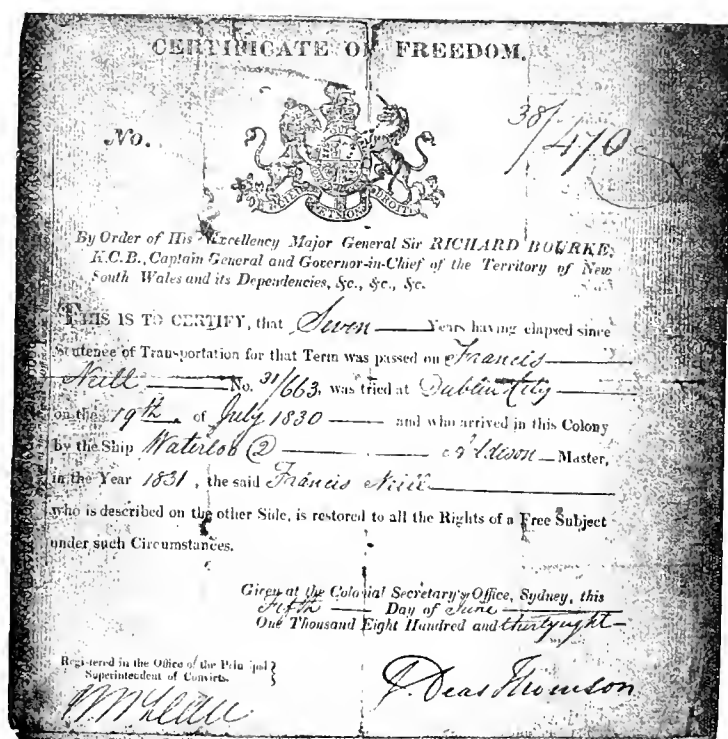 CERTIFICATE OF FREEDOM.
No.
38/470
DIEU ET MON DROIT
By Order of His Excellency Major General Sir RICHARD BOURKE,
K.C.B., Captain General and Governor-in-Chief of the Territory of New
South Wales and its Dependencies, &c., &c., &c.
THIS IS TO CERTIFY, that Seven Years having elapsed since
Sentence of Transportation for that Term was passed on Francis
Neill No. 31/663, was tried at Dublin City
on the 19th of July 1830 and who arrived in this Colony
by the Ship Waterloo (2) Addison Master,
in the Year 1831, the said Francis Neill
who is described on the other Side, is restored to all the Rights of a Free Subject
under such Circumstances.
Given at the Colonial Secretary's Office, Sydney, this
Fifth Day of June
One Thousand Eight Hundred and thirtyeight
Registered in the Office of the Principal
Superintendent of Convicts.
E. Deas Thomson